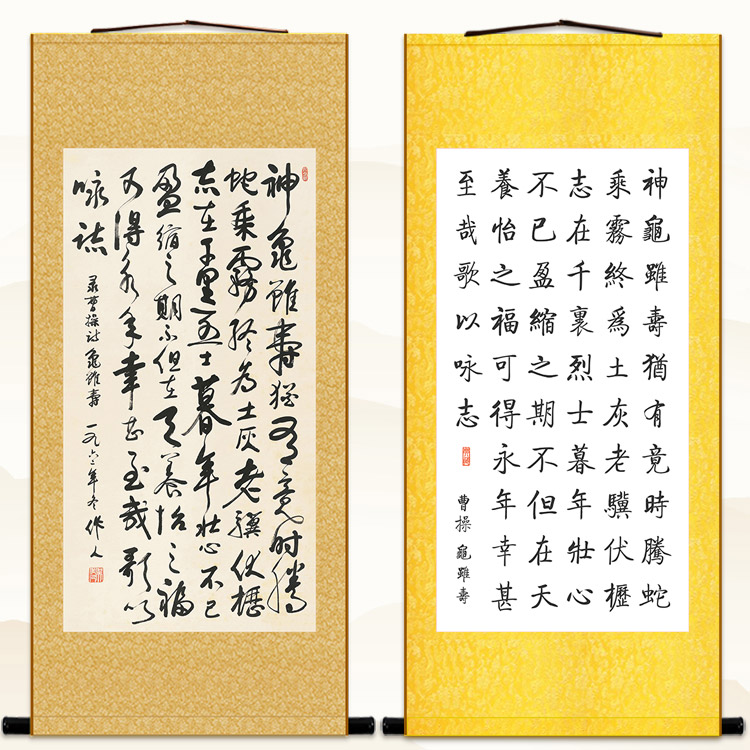 神龜雖壽猶有竟時騰
蛇乘霧终為土灰老驥伏櫪
志在千里烈士暮年壮心不已
盈缩之期不但在天養怡之福
可得永年幸甚至哉歌以
咏誌
录曹操诗龜雖壽 一九六二年冬 作人
神龜雖壽猶有竟時騰蛇
乘霧終爲土灰老驥伏櫪
志在千裏烈士暮年壯心
不已盈縮之期不但在天
養怡之福可得永年幸甚
至哉歌以咏志
曹操 龜雖壽